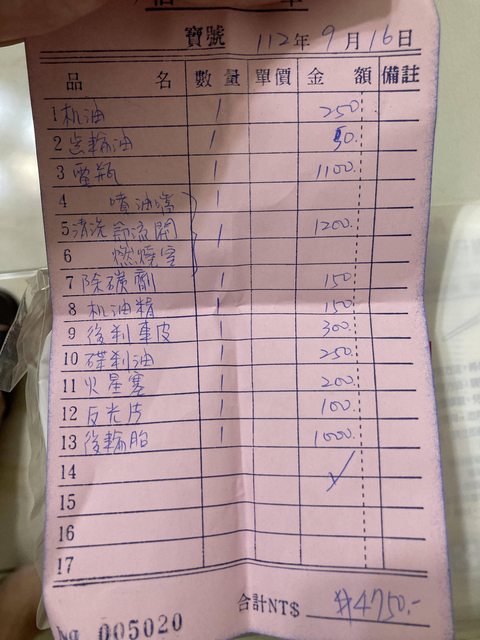 寶號 112年9月16日
品名 數量 單價 金額 備註
1 机油 1 250
2 齿輪油 1 50
3 電瓶 1 1100
4 噴油嘴
5 清洗節流閥 1 1200
6 燃燒室
7 除碳劑 1 150
8 机油精 1 150
9 後刹車皮 1 300
10 碟刹油 1 250
11 火星塞 1 200
12 反光片 1 100
13 後輪胎 1 1000
14
15
16
17
合計NT$ #4750.-
No 005020